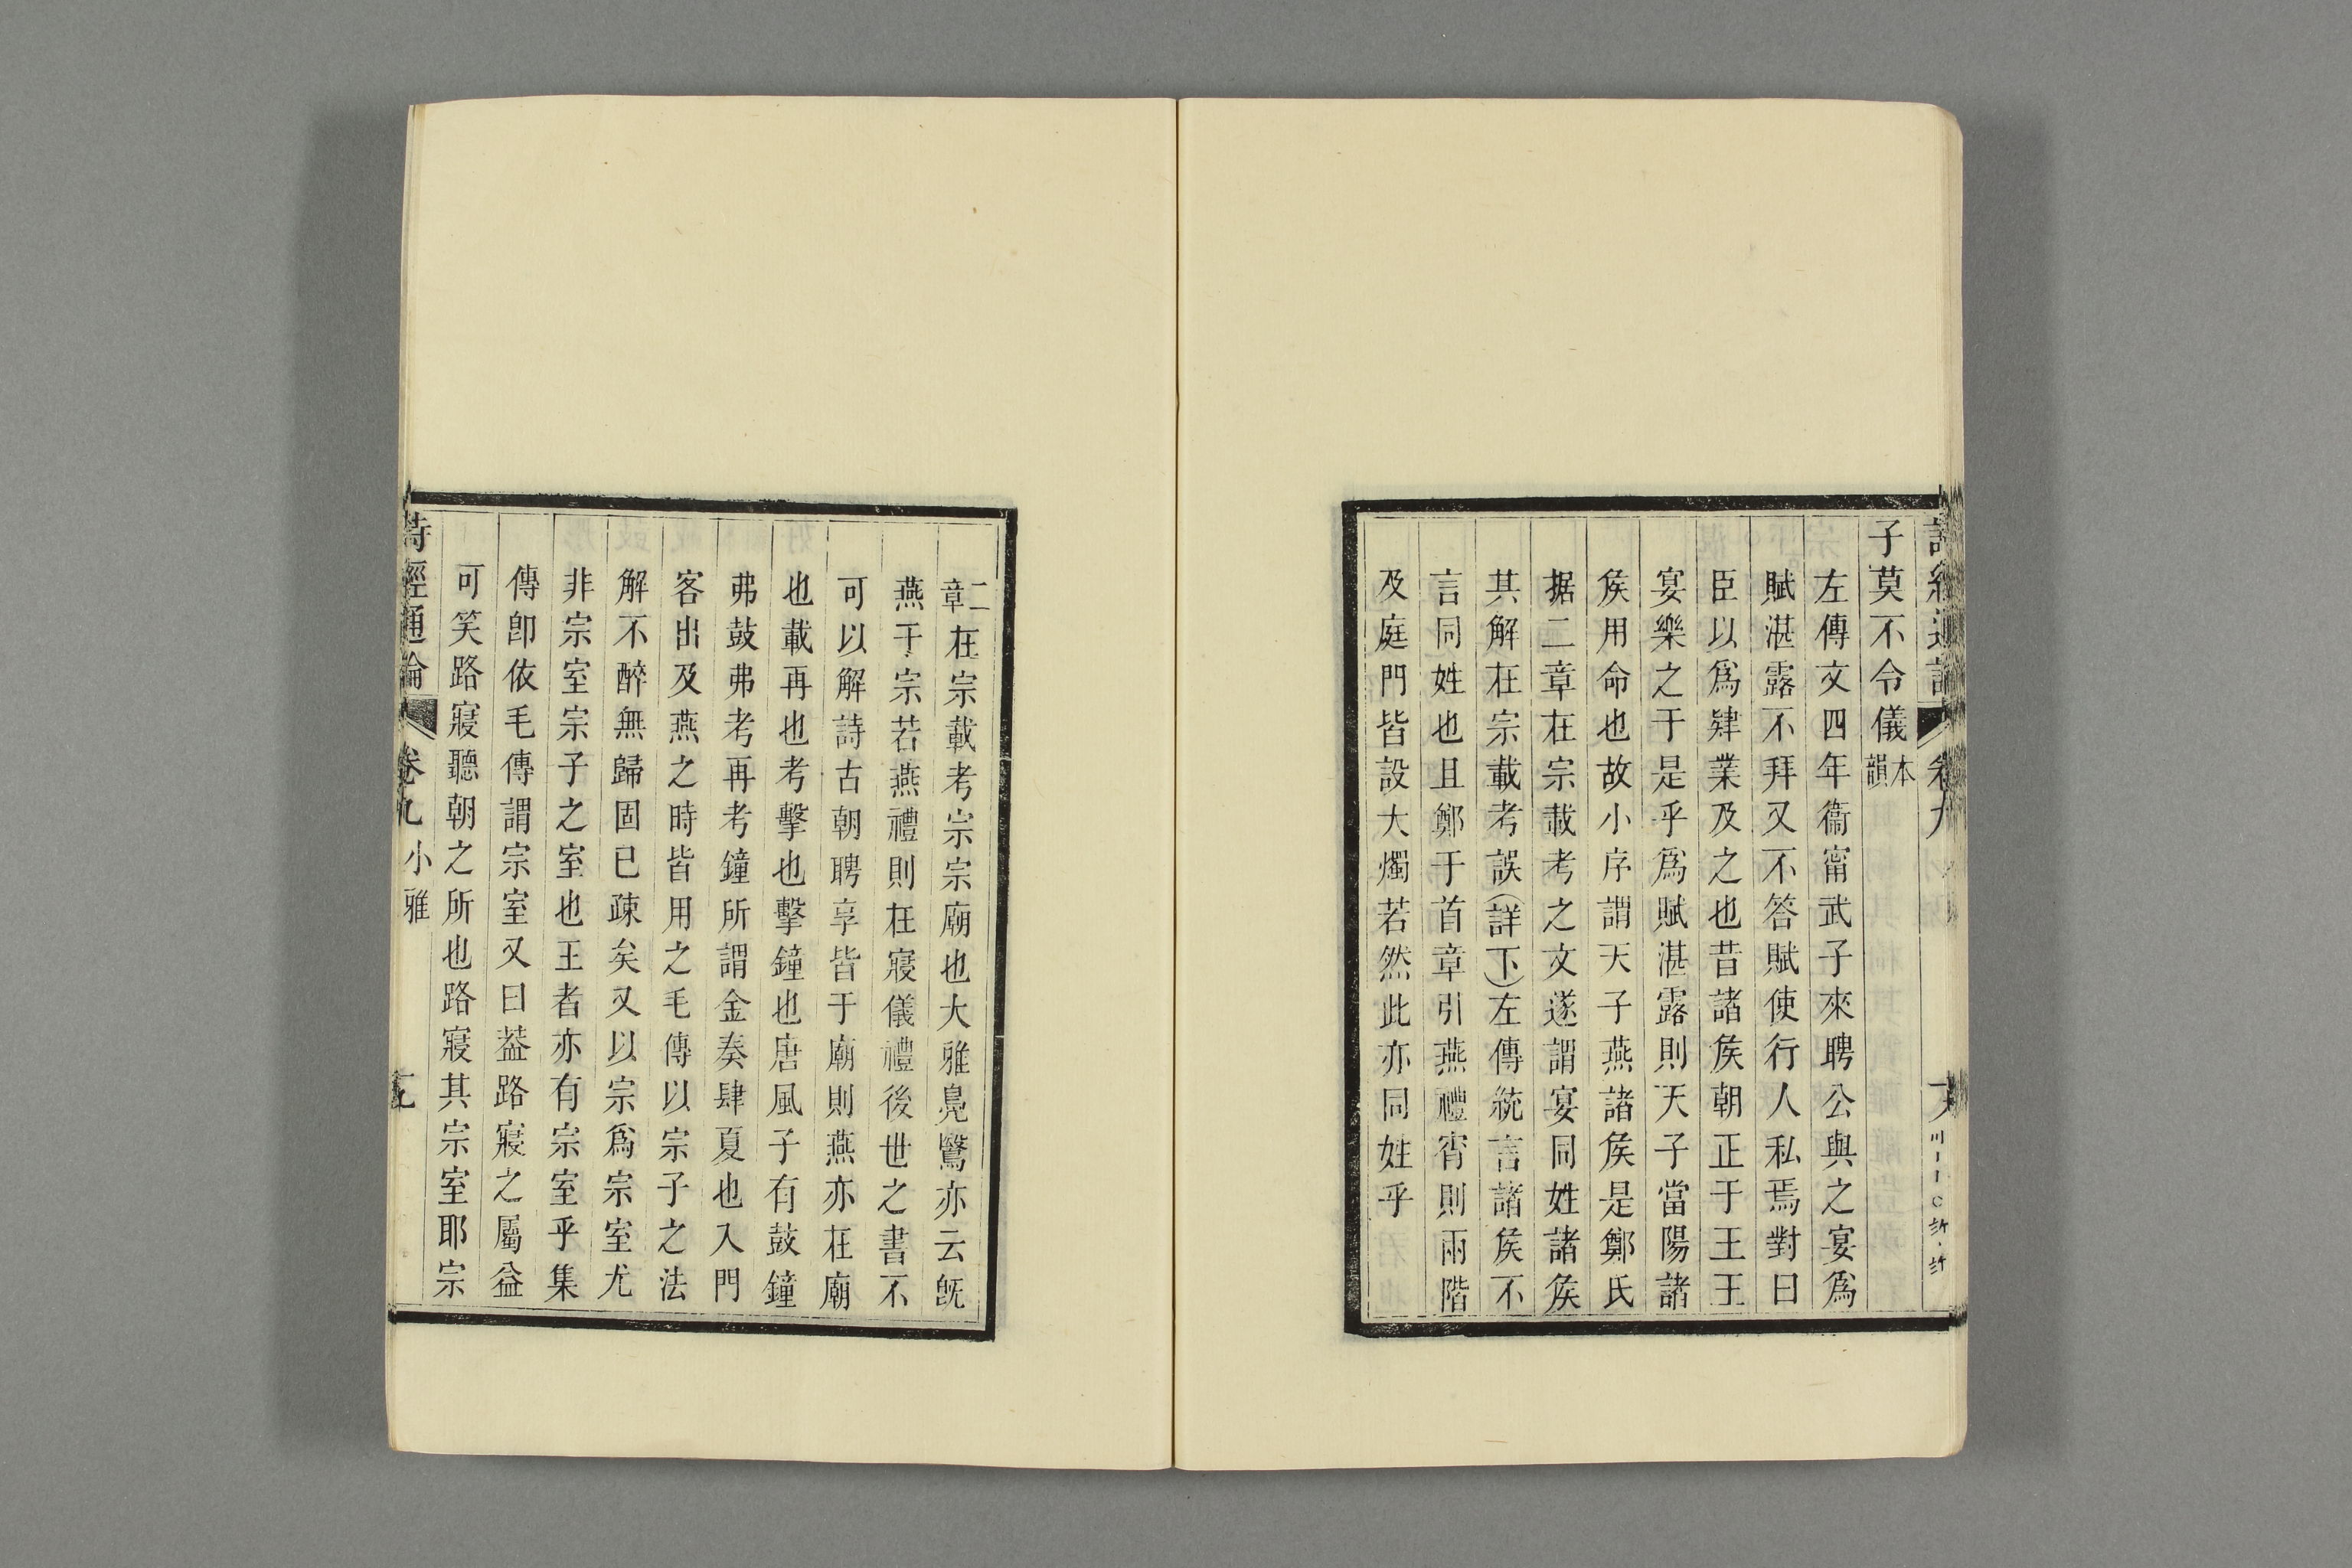 子莫不令儀本韻
左傳文四年衞甯武子來聘公與之宴爲
賦湛露不拜又不答賦使行人私焉對曰
臣以爲肄業及之也昔諸矦朝正于王王
宴樂之于是乎爲賦湛露則天子當陽諸
矦用命也故小序謂天子燕諸矦是鄭氏
据二章在宗載考之文遂謂宴同姓諸矦
其解在宗載考誤(詳下)左傳統言諸矦不
言同姓也且鄭于首章引燕禮宵則兩階
及庭門皆設大燭若然此亦同姓乎
二章在宗載考宗宗廟也大雅鳧鷖亦云旣
燕于宗若燕禮則在寢儀禮後世之書不
可以解詩古朝聘享皆于廟則燕亦在廟
也載再也考擊也擊鐘也唐風子有鼓鐘
弗鼓弗考再考鐘所謂金奏肆夏也入門
客出及燕之時皆用之毛傳以宗子之法
解不醉無歸固已疎矣又以宗爲宗室尤
非宗室宗子之室也王者亦有宗室乎集
傳卽依毛傳謂宗室又曰葢路寢之屬益
可笑路寢聽朝之所也路寢其宗室耶宗
詩經通論 卷九 小雅